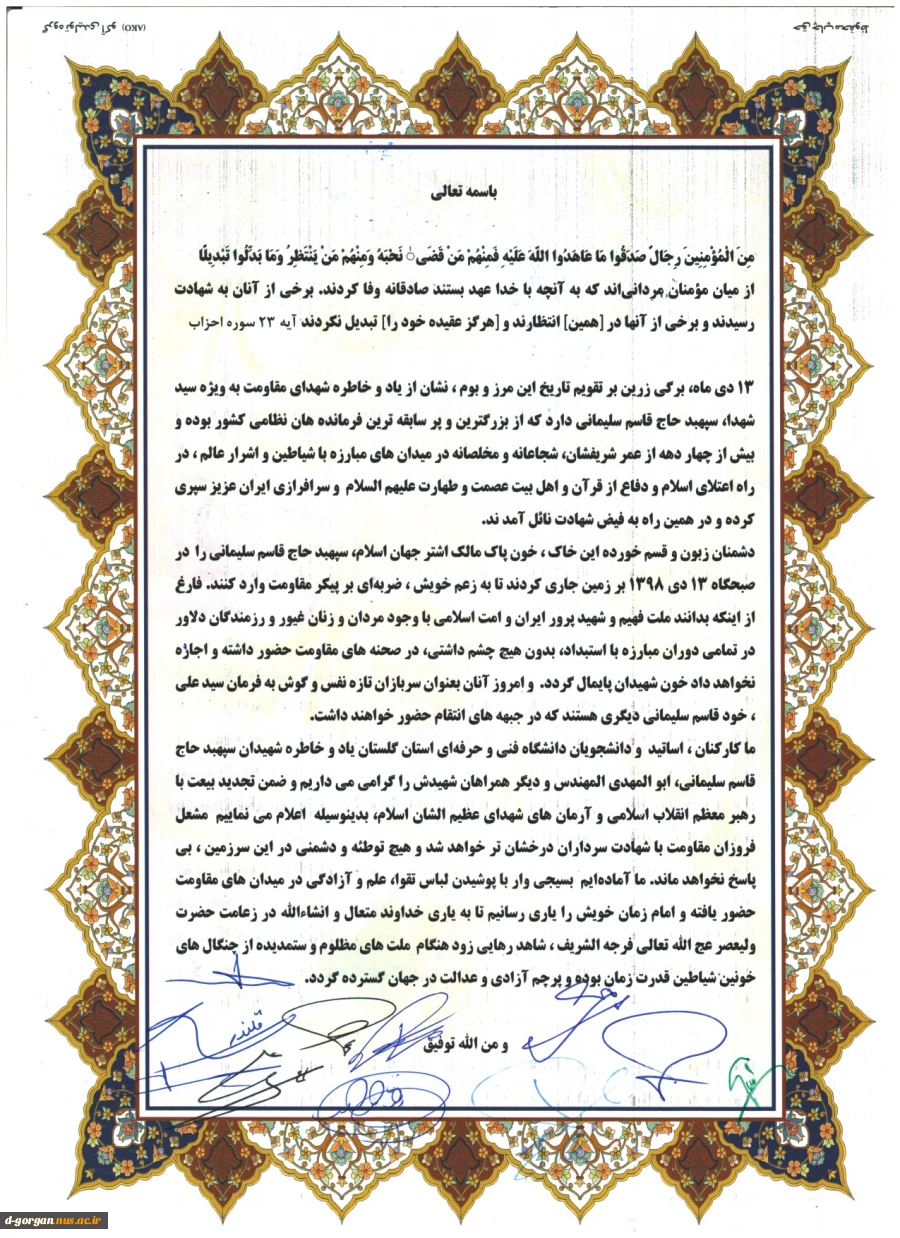 حق چاپ محفوظ
گروه تولیدی آکو (AKO)
باسمه تعالی
مِنَ الْمُؤْمِنِینَ رِجَالٌ صَدَقُوا مَا عَاهَدُوا اللَّهَ عَلَیْهِ فَمِنْهُمْ مَنْ قَضَىٰ نَحْبَهُ وَمِنْهُمْ مَنْ یَنْتَظِرُ وَمَا بَدَّلُوا تَبْدِیلًا
از میان مؤمنان مردانی‌اند که به آنچه با خدا عهد بستند صادقانه وفا کردند. برخی از آنان به شهادت
رسیدند و برخی از آنها در [همین] انتظارند و [هرگز عقیده خود را] تبدیل نکردند آیه ۲۳ سوره احزاب
۱۳ دی ماه، برگی زرین بر تقویم تاریخ این مرز و بوم ، نشان از یاد و خاطره شهدای مقاومت به ویژه سید
شهدا، سپهبد حاج قاسم سلیمانی دارد که از بزرگترین و پر سابقه ترین فرمانده هان نظامی کشور بوده و
بیش از چهار دهه از عمر شریفشان، شجاعانه و مخلصانه در میدان های مبارزه با شیاطین و اشرار عالم ، در
راه اعتلای اسلام و دفاع از قرآن و اهل بیت عصمت و طهارت علیهم السلام و سرافرازی ایران عزیز سپری
کرده و در همین راه به فیض شهادت نائل آمد ند.
دشمنان زبون و قسم خورده این خاک ، خون پاک مالک اشتر جهان اسلام، سپهبد حاج قاسم سلیمانی را در
صبحگاه ۱۳ دی ۱۳۹۸ بر زمین جاری کردند تا به زعم خویش ، ضربه‌ای بر پیکر مقاومت وارد کنند. فارغ
از اینکه بدانند ملت فهیم و شهید پرور ایران و امت اسلامی با وجود مردان و زنان غیور و رزمندگان دلاور
در تمامی دوران مبارزه با استبداد، بدون هیچ چشم داشتی، در صحنه های مقاومت حضور داشته و اجازه
نخواهد داد خون شهیدان پایمال گردد. و امروز آنان بعنوان سربازان تازه نفس و گوش به فرمان سید علی
، خود قاسم سلیمانی دیگری هستند که در جبهه های انتقام حضور خواهند داشت.
ما کارکنان ، اساتید و دانشجویان دانشگاه فنی و حرفه‌ای استان گلستان یاد و خاطره شهیدان سپهبد حاج
قاسم سلیمانی، ابو المهدی المهندس و دیگر همراهان شهیدش را گرامی می داریم و ضمن تجدید بیعت با
رهبر معظم انقلاب اسلامی و آرمان های شهدای عظیم الشان اسلام، بدینوسیله اعلام می نماییم مشعل
فروزان مقاومت با شهادت سرداران درخشان تر خواهد شد و هیچ توطئه و دشمنی در این سرزمین ، بی
پاسخ نخواهد ماند. ما آماده‌ایم بسیجی وار با پوشیدن لباس تقوا، علم و آزادگی در میدان های مقاومت
حضور یافته و امام زمان خویش را یاری رسانیم تا به یاری خداوند متعال و انشاءالله در زعامت حضرت
ولیعصر عج الله تعالی فرجه الشریف ، شاهد رهایی زود هنگام ملت های مظلوم و ستمدیده از چنگال های
خونین شیاطین قدرت زمان بوده و پرچم آزادی و عدالت در جهان گسترده گردد.
و من الله توفیق
d-gorgan.nus.ac.ir